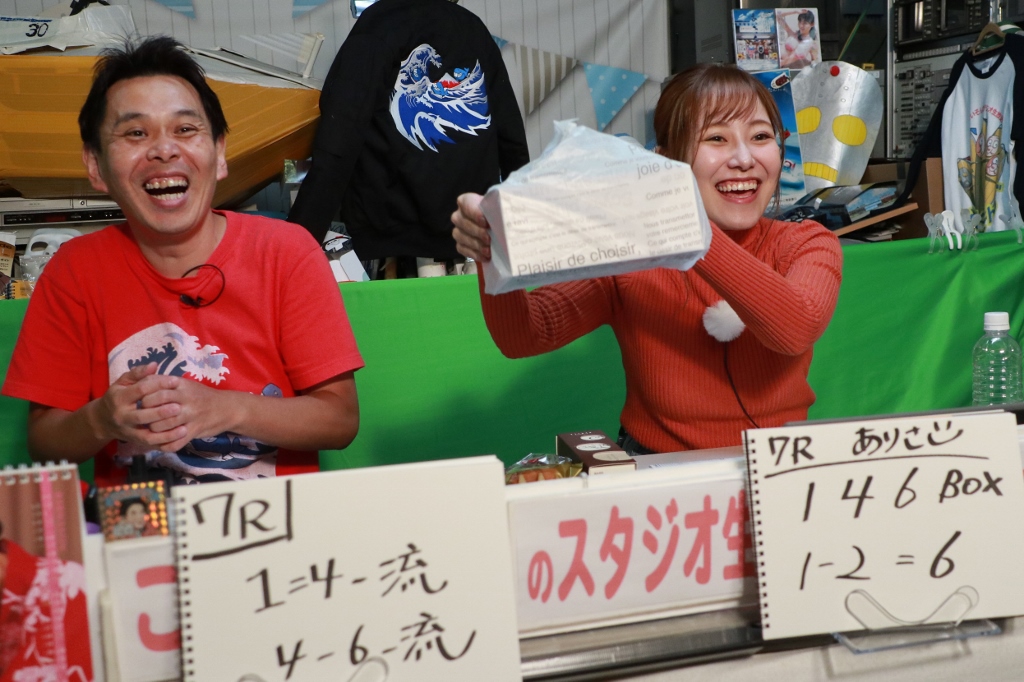 30
joie d
Comme je v
Plaisir de choisir,
7R
1=4-流
4-6-流
こ
のスタジオ生
7R ありさ
1 4 6 BOX
1-2=6